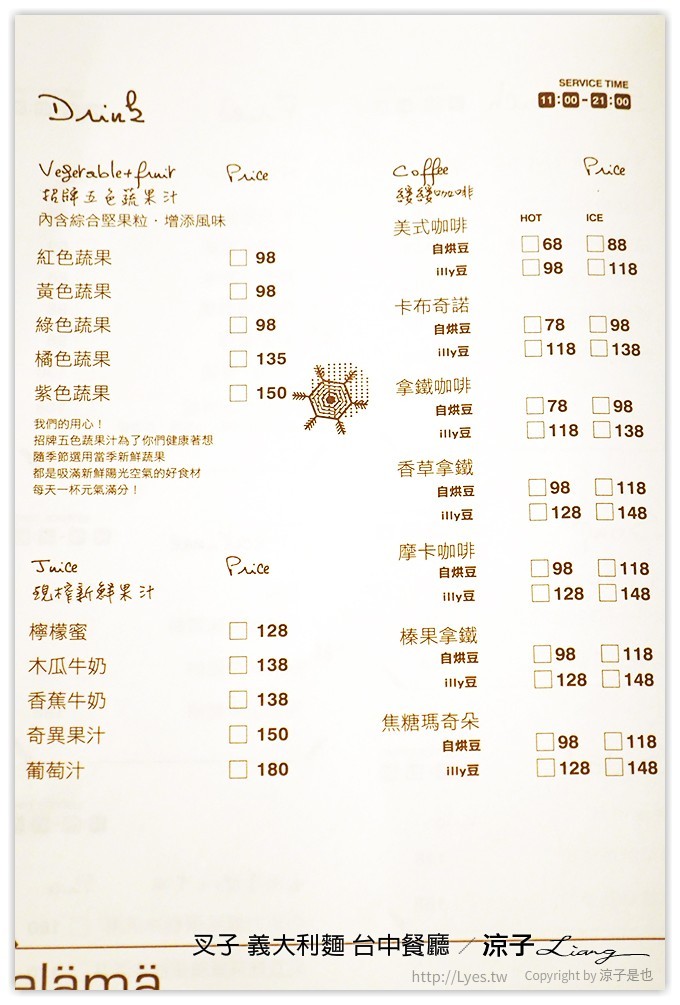 SERVICE TIME
11:00-21:00
Drink
Vegetable+fruit Price
招牌五色蔬果汁
內含綜合堅果粒·增添風味
紅色蔬果 98
黃色蔬果 98
綠色蔬果 98
橘色蔬果 135
紫色蔬果 150
我們的用心！
招牌五色蔬果汁為了你們健康著想
隨季節選用當季新鮮蔬果
都是吸滿新鮮陽光空氣的好食材
每天一杯元氣滿分！
Juice Price
現榨新鮮果汁
檸檬蜜 128
木瓜牛奶 138
香蕉牛奶 138
奇異果汁 150
葡萄汁 180
Coffee Price
縷縷咖啡
HOT ICE
美式咖啡
自烘豆 68 88
illy豆 98 118
卡布奇諾
自烘豆 78 98
illy豆 118 138
拿鐵咖啡
自烘豆 78 98
illy豆 118 138
香草拿鐵
自烘豆 98 118
illy豆 128 148
摩卡咖啡
自烘豆 98 118
illy豆 128 148
榛果拿鐵
自烘豆 98 118
illy豆 128 148
焦糖瑪奇朵
自烘豆 98 118
illy豆 128 148
elämä
叉子 義大利麵 台中餐廳 / 涼子 Liang
http://Lyes.tw Copyright by 涼子是也